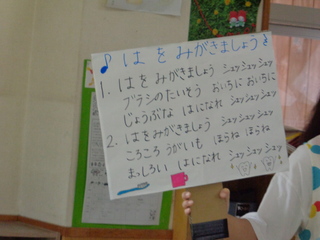 ♪ はをみがきましょうを
1. はを みがきましょう シュッシュッシュッ
ブラシのたいそう おいちに おいちに
じょうぶな はになれ シュッシュッシュッ
2. はをみがきましょう シュッシュッシュッ
ころころ うがいも ほらね ほらね
まっしろい はになれ シュッシュッシュッ